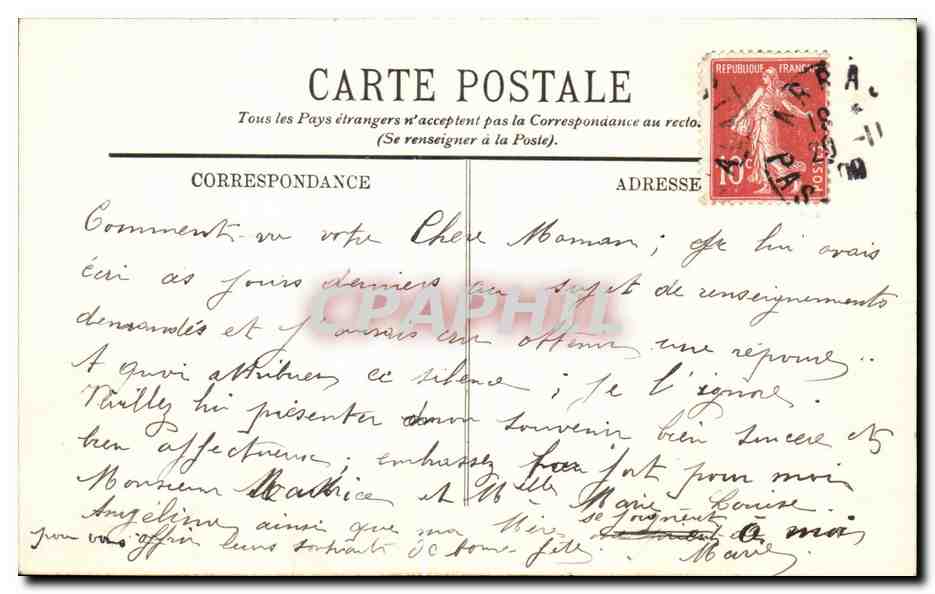 CARTE POSTALE
Tous les Pays étrangers n'acceptent pas la Correspondance au recto.
(Se renseigner à la Poste).
REPUBLIQUE FRANÇAISE
10c
POSTES
CORRESPONDANCE
ADRESSE
Comment va votre Chere Maman ; Je lui avais
écri ces jours derniers au sujet de renseignements
demandés et j'aurais cru obtenir une réponse..
A quoi attribuer ce silence ; je l'ignore.
Veuillez lui présenter mon souvenir bien sincère et
bien affectueux ; embrassez fort pour moi
Monsieur Maurice et Mlle Marie Louise
Angéline ainsi que ma Mère se joignent à moi
pour vous offrir leurs souhaits de bonne fête
Marie
CPAPHIL